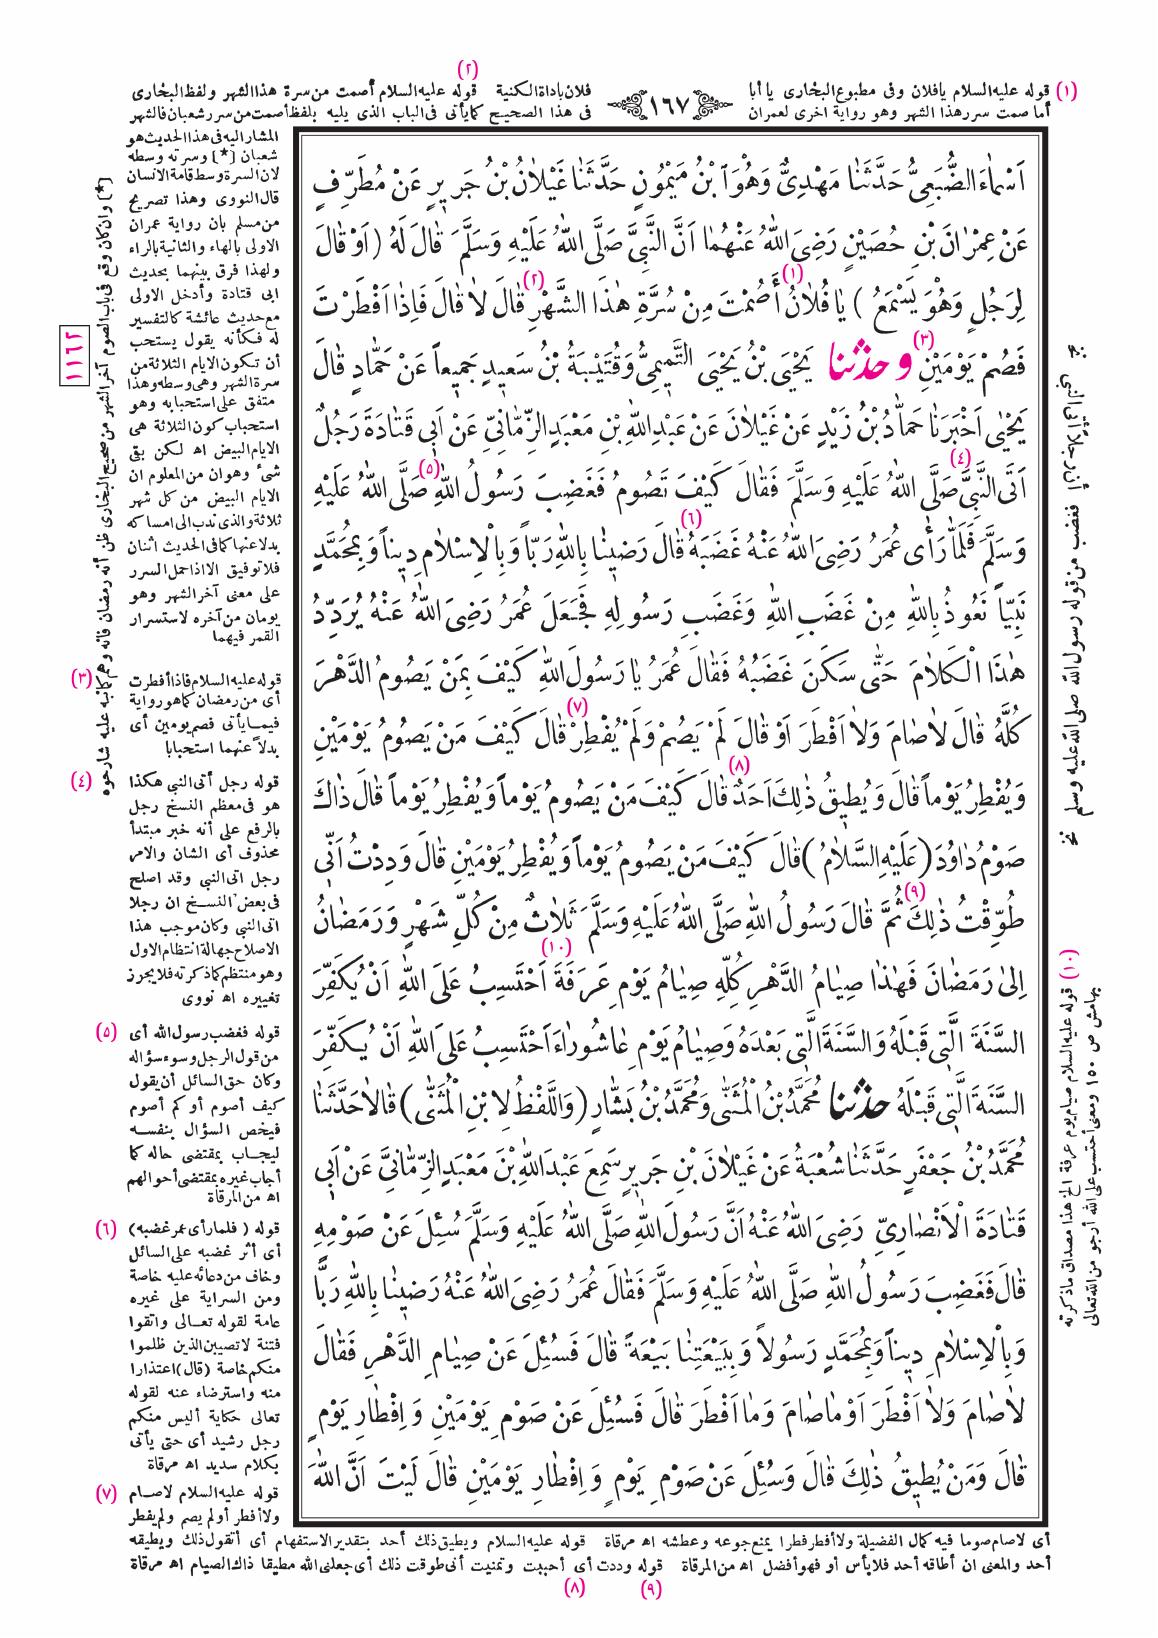 (٢)
(١) قوله عليه السلام يافلان وفى مطبوع البخارى يا أبا
١٦٧
فلان باداة الكنية قوله عليه السلام أصمت من سرة هذا الشهر ولفظ البخارى
أما صمت سرر هذا الشهر وهو رواية اخرى لعمران
فى هذا الصحيح كما يأتى فى الباب الذى يليه بلفظ أصمت من سرر شعبان فالشهر
اَسْمَاءَ الضُّبَعِىُّ حَدَّثَنَا مَهْدِىٌّ وَهُوَ ٱبْنُ مَيْمُونٍ حَدَّثَنَا غَيْلَانُ بْنُ جَرِيرٍ عَنْ مُطَرِّفٍ
عَنْ عِمْرَانَ بْنِ حُصَيْنٍ رَضِىَ اللّٰهُ عَنْهُمَا اَنَّ النَّبِىَّ صَلَّى اللّٰهُ عَلَيْهِ وَسَلَّمَ قَالَ لَهُ (اَوْ قَالَ
(١) (٢)
لِرَجُلٍ وَهُوَ يَسْمَعُ) يَا فُلَانُ أَصُمْتَ مِنْ سُرَّةِ هٰذَا الشَّهْرِ قَالَ لَا قَالَ فَاِذَا اَفْطَرْتَ
(٣)
فَصُمْ يَوْمَيْنِ وحدثنا يَحْيَى بْنُ يَحْيَى التَّمِيمِىُّ وَقُتَيْبَةُ بْنُ سَعِيدٍ جَمِيعاً عَنْ حَمَّادٍ قَالَ
يَحْيٰى اَخْبَرَنَا حَمَّادُ بْنُ زَيْدٍ عَنْ غَيْلَانَ عَنْ عَبْدِ اللّٰهِ بْنِ مَعْبَدٍ الزِّمَّانِىِّ عَنْ اَبِى قَتَادَةَ رَجُلٌ
(٤) (٥)
اَتَى النَّبِىَّ صَلَّى اللّٰهُ عَلَيْهِ وَسَلَّمَ فَقَالَ كَيْفَ تَصُومُ فَغَضِبَ رَسُولُ اللّٰهِ صَلَّى اللّٰهُ عَلَيْهِ
(٦)
وَسَلَّمَ فَلَمَّا رَأٰى عُمَرُ رَضِىَ اللّٰهُ عَنْهُ غَضَبَهُ قَالَ رَضِينَا بِاللّٰهِ رَبّاً وَبِالْاِسْلَامِ دِيناً وَبِمُحَمَّدٍ
نَبِيّاً نَعُوذُ بِاللّٰهِ مِنْ غَضَبِ اللّٰهِ وَغَضَبِ رَسُولِهِ فَجَعَلَ عُمَرُ رَضِىَ اللّٰهُ عَنْهُ يُرَدِّدُ
هٰذَا الْكَلَامَ حَتَّى سَكَنَ غَضَبُهُ فَقَالَ عُمَرُ يَا رَسُولَ اللّٰهِ كَيْفَ بِمَنْ يَصُومُ الدَّهْرَ
(٧)
كُلَّهُ قَالَ لَا صَامَ وَلَا اَفْطَرَ اَوْ قَالَ لَمْ يَصُمْ وَلَمْ يُفْطِرْ قَالَ كَيْفَ مَنْ يَصُومُ يَوْمَيْنِ
(٨)
وَيُفْطِرُ يَوْماً قَالَ وَيُطِيقُ ذٰلِكَ اَحَدٌ قَالَ كَيْفَ مَنْ يَصُومُ يَوْماً وَيُفْطِرُ يَوْماً قَالَ ذَاكَ
صَوْمُ دَاوُدَ (عَلَيْهِ السَّلَامُ) قَالَ كَيْفَ مَنْ يَصُومُ يَوْماً وَيُفْطِرُ يَوْمَيْنِ قَالَ وَدِدْتُ اَنِّى
(٩)
طُوِّقْتُ ذٰلِكَ ثُمَّ قَالَ رَسُولُ اللّٰهِ صَلَّى اللّٰهُ عَلَيْهِ وَسَلَّمَ ثَلَاثٌ مِنْ كُلِّ شَهْرٍ وَرَمَضَانُ
(١٠)
اِلَى رَمَضَانَ فَهٰذَا صِيَامُ الدَّهْرِ كُلِّهِ صِيَامُ يَوْمِ عَرَفَةَ اَحْتَسِبُ عَلَى اللّٰهِ اَنْ يُكَفِّرَ
السَّنَةَ الَّتِى قَبْلَهُ وَالسَّنَةَ الَّتِى بَعْدَهُ وَصِيَامُ يَوْمِ عَاشُورَاءَ اَحْتَسِبُ عَلَى اللّٰهِ اَنْ يُكَفِّرَ
السَّنَةَ الَّتِى قَبْلَهُ حدثنا مُحَمَّدُ بْنُ الْمُثَنَّى وَمُحَمَّدُ بْنُ بَشَّارٍ (وَاللَّفْظُ لِابْنِ الْمُثَنَّى) قَالَا حَدَّثَنَا
مُحَمَّدُ بْنُ جَعْفَرٍ حَدَّثَنَا شُعْبَةُ عَنْ غَيْلَانَ بْنِ جَرِيرٍ سَمِعَ عَبْدَ اللّٰهِ بْنَ مَعْبَدٍ الزِّمَّانِىَّ عَنْ اَبِى
قَتَادَةَ الْاَنْصَارِىِّ رَضِىَ اللّٰهُ عَنْهُ اَنَّ رَسُولَ اللّٰهِ صَلَّى اللّٰهُ عَلَيْهِ وَسَلَّمَ سُئِلَ عَنْ صَوْمِهِ
قَالَ فَغَضِبَ رَسُولُ اللّٰهِ صَلَّى اللّٰهُ عَلَيْهِ وَسَلَّمَ فَقَالَ عُمَرُ رَضِىَ اللّٰهُ عَنْهُ رَضِينَا بِاللّٰهِ رَبّاً
وَبِالْاِسْلَامِ دِيناً وَبِمُحَمَّدٍ رَسُولاً وَبِبَيْعَتِنَا بَيْعَةً قَالَ فَسُئِلَ عَنْ صِيَامِ الدَّهْرِ فَقَالَ
لَا صَامَ وَلَا اَفْطَرَ اَوْ مَا صَامَ وَمَا اَفْطَرَ قَالَ فَسُئِلَ عَنْ صَوْمِ يَوْمَيْنِ وَاِفْطَارِ يَوْمٍ
قَالَ وَمَنْ يُطِيقُ ذٰلِكَ قَالَ وَسُئِلَ عَنْ صَوْمِ يَوْمٍ وَاِفْطَارِ يَوْمَيْنِ قَالَ لَيْتَ اَنَّ اللّٰهَ
المشار اليه فى هذا الحديث هو
شعبان [*] وسرته وسطه
لان السرة وسط قامة الانسان
قال النووى وهذا تصريح
من مسلم بان رواية عمران
الاولى بالهاء والثانية بالراء
ولهذا فرق بينهما بحديث
ابى قتادة وأدخل الاولى
مع حديث عائشة كالتفسير
له فكأنه يقول يستحب
أن تكون الايام الثلاثة من
سرة الشهر وهى وسطه وهذا
متفق على استحبابه وهو
استحباب كون الثلاثة هى
الايام البيض اه لكن بقى
شئ وهو ان من المعلوم ان
الايام البيض من كل شهر
ثلاثة والذى ندب الى امساكه
بدلا عنها كما فى الحديث اثنان
فلا توفيق الا اذا حمل السرر
على معنى آخر الشهر وهو
يومان من آخره لاستسرار
القمر فيهما
(٣) قوله عليه السلام فاذا أفطرت
أى من رمضان كما هو رواية
فيما يأتى فصم يومين أى
بدلاً عنهما استحبابا
(٤) قوله رجل أتى النبى هكذا
هو فى معظم النسخ رجل
بالرفع على أنه خبر مبتدأ
محذوف أى الشان والامر
رجل اتى النبى وقد اصلح
فى بعض النسخ ان رجلا
اتى النبى وكان موجب هذا
الاصلاح جهالة انتظام الاول
وهو منتظم كما ذكرته فلا يجوز
تغييره اه نووى
(٥) قوله فغضب رسول الله أى
من قول الرجل وسوء سؤاله
وكان حق السائل أن يقول
كيف أصوم أو كم أصوم
فيخص السؤال بنفسه
ليجاب بمقتضى حاله كما
أجاب غيره بمقتضى أحوالهم
اه من المرقاة
(٦) قوله (فلما رأى عمر غضبه)
أى أثر غضبه على السائل
وخاف من دعائه عليه خاصة
ومن السراية على غيره
عامة لقوله تعالى واتقوا
فتنة لا تصيبن الذين ظلموا
منكم خاصة (قال) اعتذارا
منه واسترضاء عنه لقوله
تعالى حكاية أليس منكم
رجل رشيد أى حتى يأتى
بكلام سديد اه مرقاة
(٧) قوله عليه السلام لاصام
ولا أفطر أو لم يصم ولم يفطر
أى لاصام صوما فيه كمال الفضيلة ولا أفطر فطرا يمنع جوعه وعطشه اه مرقاة قوله عليه السلام ويطيق ذلك أحد بتقدير الاستفهام أى أتقول ذلك ويطيقه
أحد والمعنى ان أطاقه أحد فلا بأس أو فهو أفضل اه من المرقاة قوله وددت أى أحببت وتمنيت أنى طوقت ذلك أى جعلنى الله مطيقا ذاك الصيام اه مرقاة
(٩) (٨)
[*] وان كان وقع فى باب الصوم آخر الشهر من صحيح البخارى ظن أنه رمضان فانه وهم كما نبه عليه شارحوه
١١٦٢
فغضب من قوله رسول الله صلى الله عليه وسلم
(١٠) قوله عليه السلام صيام يوم عرفة الخ هذا مصداق ما ذكرته
بهامش ص ١٥٠ ومعنى أحتسب على الله أرجو من الله تعالى